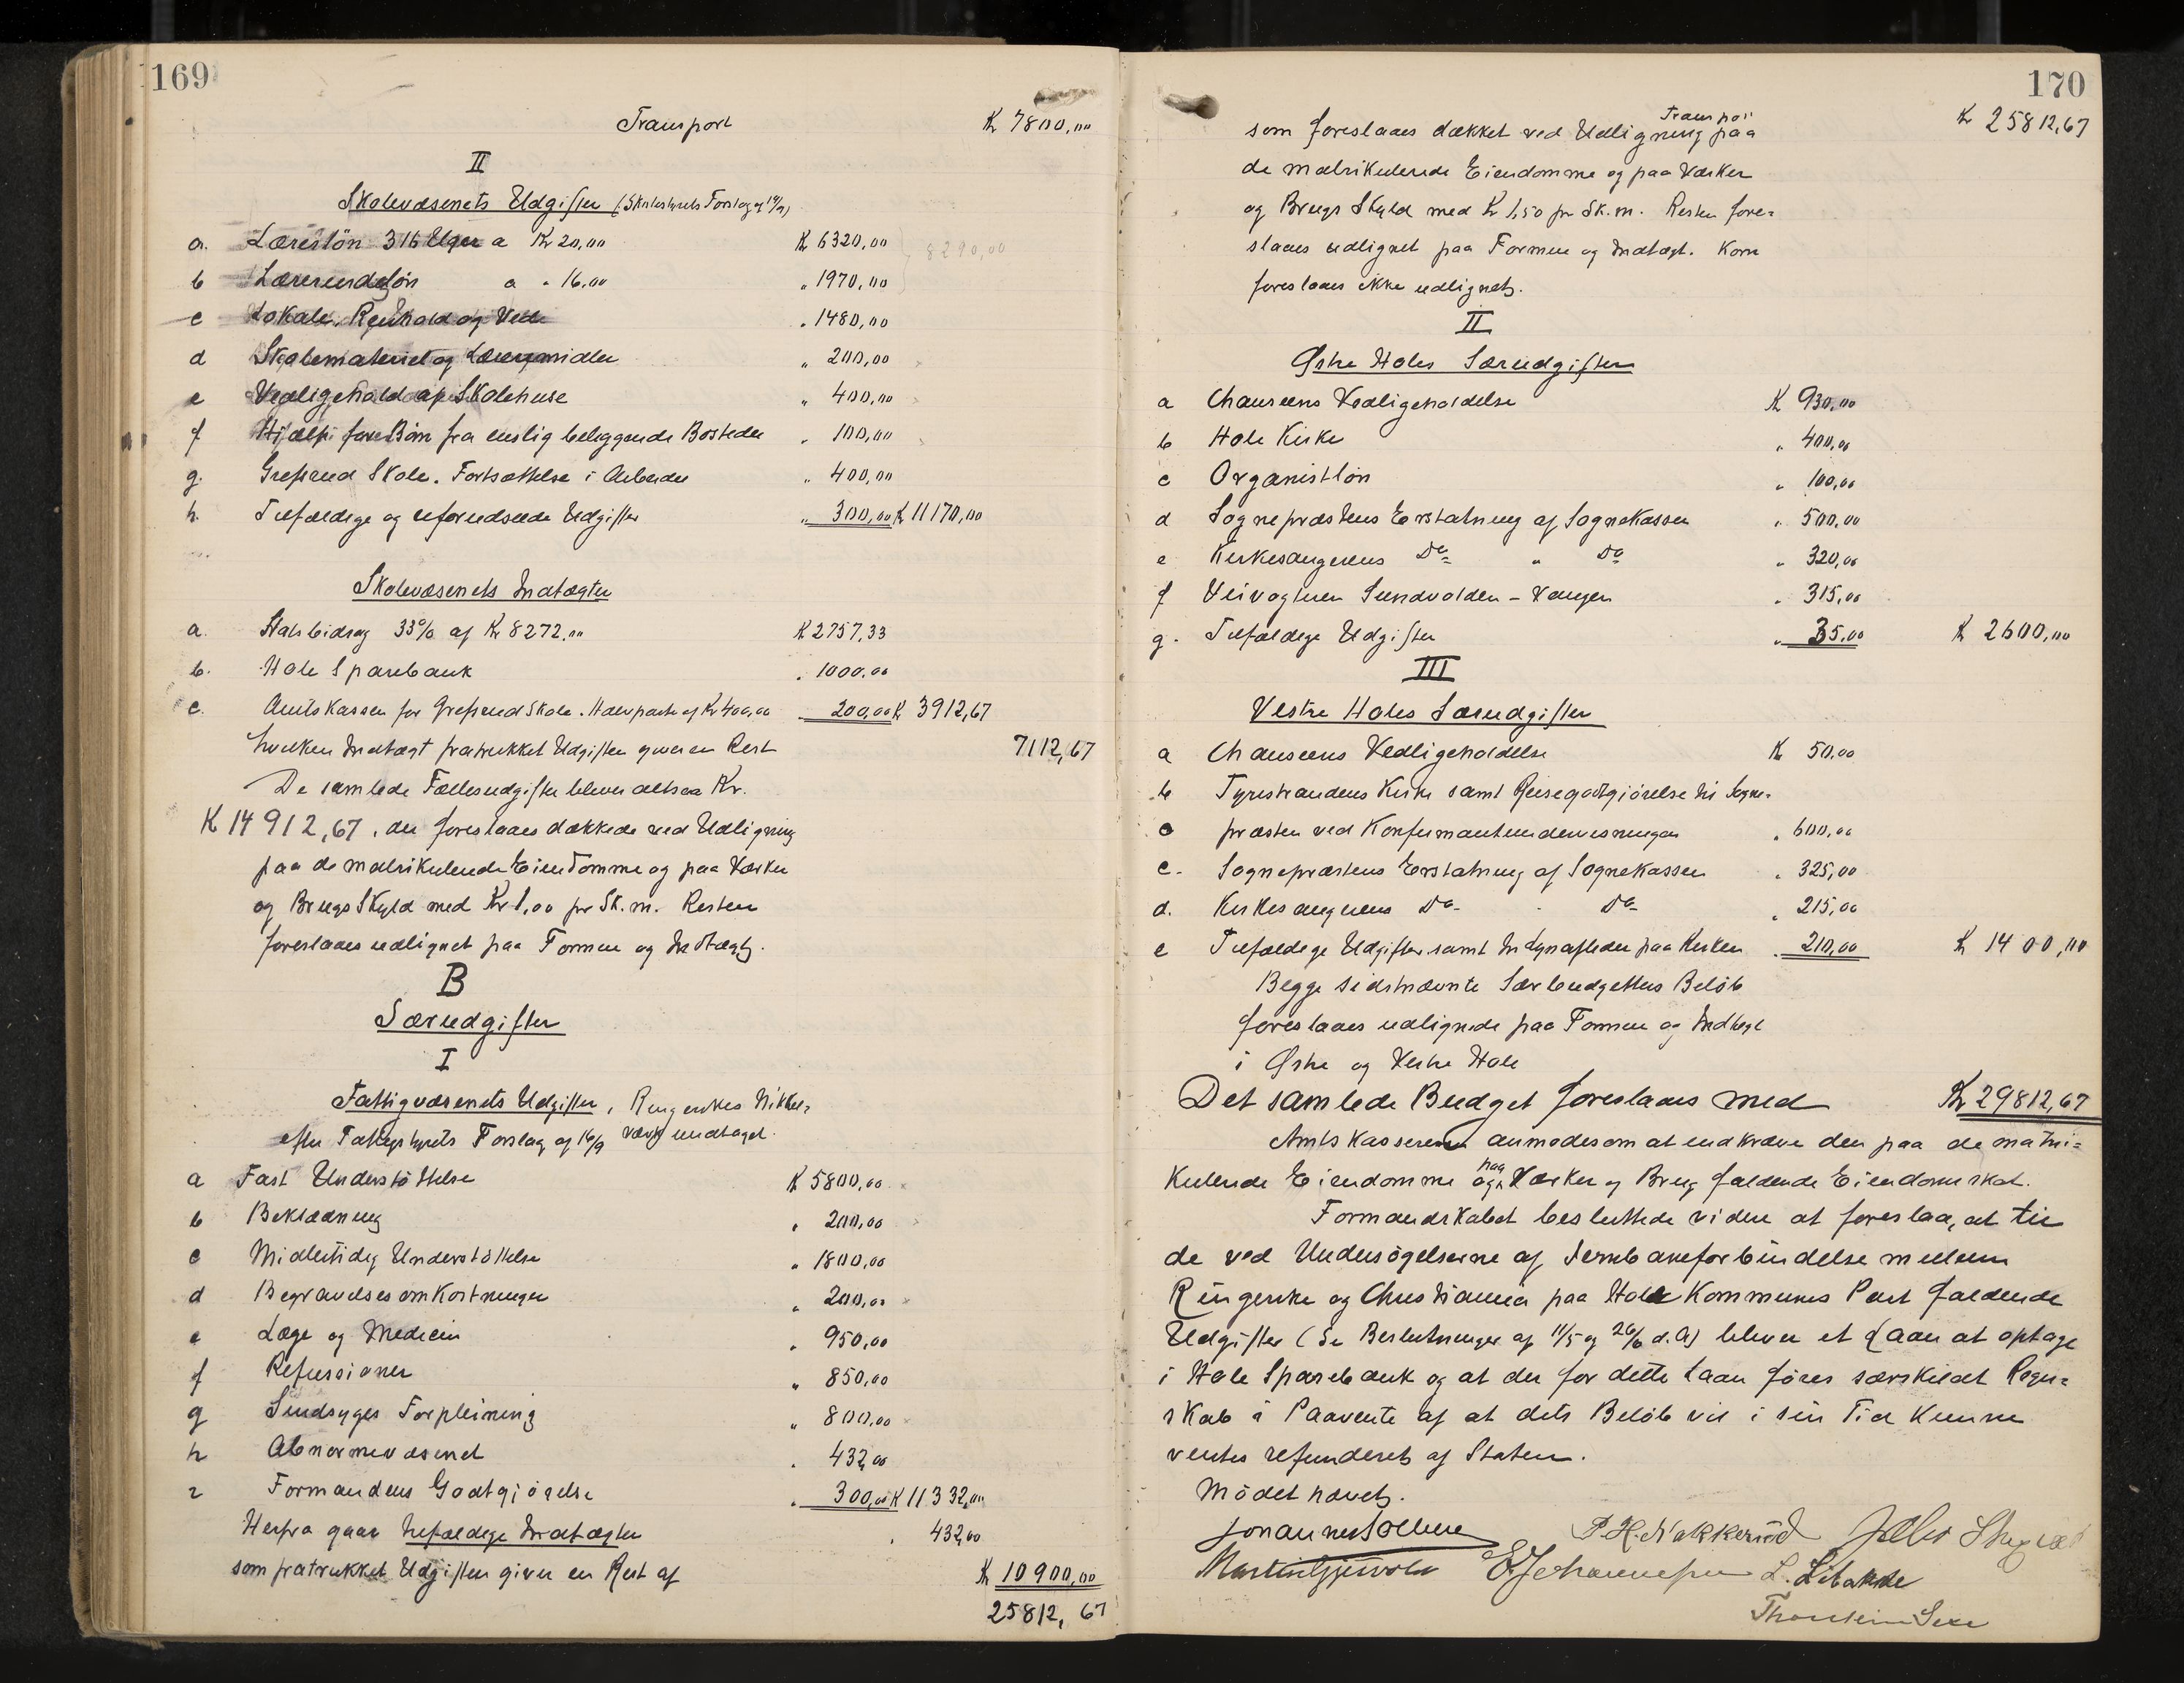 169
Transport Kr 7800,00
II
Skolevæsenets Udgifter (Skolestyrets Forslag af 19/9)
a. Lærerløn 316 Uger a Kr 20,00 Kr 6320,00 8290,00
b Lærerindeløn a " 16,00 " 1970,00
c Lokale, Renhold og Ved " 1480,00
d Skolemateriel og Læremidler " 200,00
e Vedligehold af Skolehuse " 400,00
f Hjælp for Børn fra enslig beliggende Bosteder " 100,00
g. Grefsrud Skole. Fortsættelse i Arbeidet " 400,00
h. Tilfældige og uforudseede Udgifter " 300,00 Kr 11170,00
Skolevæsenets Indtægter
a. Statsbidrag 33% af Kr 8272,00 Kr 2757,33
b. Hole Sparebank " 1000,00
c. Amtskassen for Grefsrud Skole. Halvparten af Kr 400,00 200,00 Kr 3912,67
hvilken Indtægt fratrukket Udgiften giver en Rest 7112,67
De samlede Fællesudgifter bliver altsaa Kr.
Kr 14912,67, der foreslaaes dækkede ved Udligning
paa de matrikulerede Eiendomme og paa Værker
og Brugs Skyld med Kr 1,00 pr Sk.m. Resten
foreslaaes udlignet paa Formue og Indtægt.
B
Særudgifter
I
Fattigvæsenets Udgifter, Ringerikes Nikkel-
efter Fattigstyrets Forslag af 16/9 værk undtaget.
a Fast Understøttelse Kr 5800,00
b Beklædning " 200,00
c Midlertidig Understøttelse " 1800,00
d Begravelsesomkostninger " 200,00
e Læge og Medicin " 950,00
f Refusioner " 850,00
g Sindsyges Forpleining " 800,00
h Abnormevæsenet " 432,00
i Formandens Godtgjørelse " 300,00 Kr 11332,00
Herfra gaar tilfældige Indtægter " 432,00
som fratrukket Udgiften giver en Rest af Kr 10900,00
25812,67
170
Transport Kr 25812,67
som foreslaaes dækket ved Udligning paa
de matrikulerede Eiendomme og paa Værker
og Brugs Skyld med Kr 1,50 pr Sk.m. Resten fore-
slaaes udlignet paa Formue og Indtægt. Korn
foreslaaes ikke udlignet.
II
Østre Holes Særudgifter
a Chauseens Vedligeholdelse Kr 930,00
b Hole Kirke " 400,00
c Organistløn " 100,00
d Sognepræstens Erstatning af Sognekassen " 500,00
e Kirkesangerens Do " Do " 320,00
f Veivogteren Sundvolden - Vangen " 315,00
g. Tilfældige Udgifter " 35,00 Kr 2600,00
III
Vestre Holes Særudgifter
a Chauseens Vedligeholdelse Kr 50,00
b Tyristrandens Kirke samt Reisegodtgjørelse til Sogne-
præsten ved Konfirmantundervisningen " 600,00
c. Sognepræstens Erstatning af Sognekassen " 325,00
d. Kirkesangerens Do " Do " 215,00
e Tilfældige Udgifter samt Lynafleder paa Kirken " 210,00 Kr 1400,00
Begge sidstnævnte Særbudgetters Beløb
foreslaaes udlignede paa Formue og Indtægt
i Østre og Vestre Hole
Det samlede Budget foreslaaes med Kr 29812,67
Amtskassereren anmodes om at indkræve den paa de matri-
kulerede Eiendomme og paa Værker og Brug faldende Eiendomsskat.
Formandskabet besluttede videre at foreslaa, at til
de ved Undersøgelserne af Jernbaneforbindelse mellem
Ringerike og Christiania paa Hole Kommunes Part faldende
Udgifter (Se Beslutninger af 11/5 og 26/6 d.A) bliver et Laan at optage
i Hole Sparebank og at der for dette Laan føres særskildt Regn-
skab i Paavente af at dets Beløb vil i sin Tid kunne
ventes refunderet af Staten.
Mødet hævet.
Johannes Sollien P.H. Nakkerud
Martin Gjesvold E Johannesen L. Libakke
Thorstein